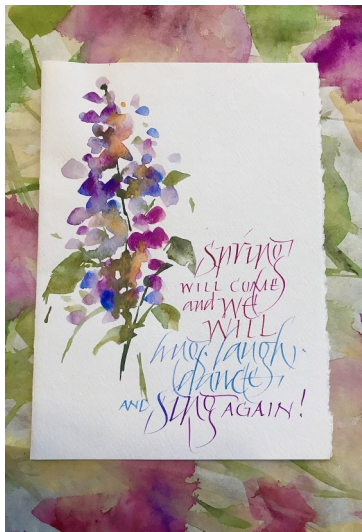 spring
WILL COME
and WE
WILL
hug. laugh.
dance,
AND SING AGAIN!